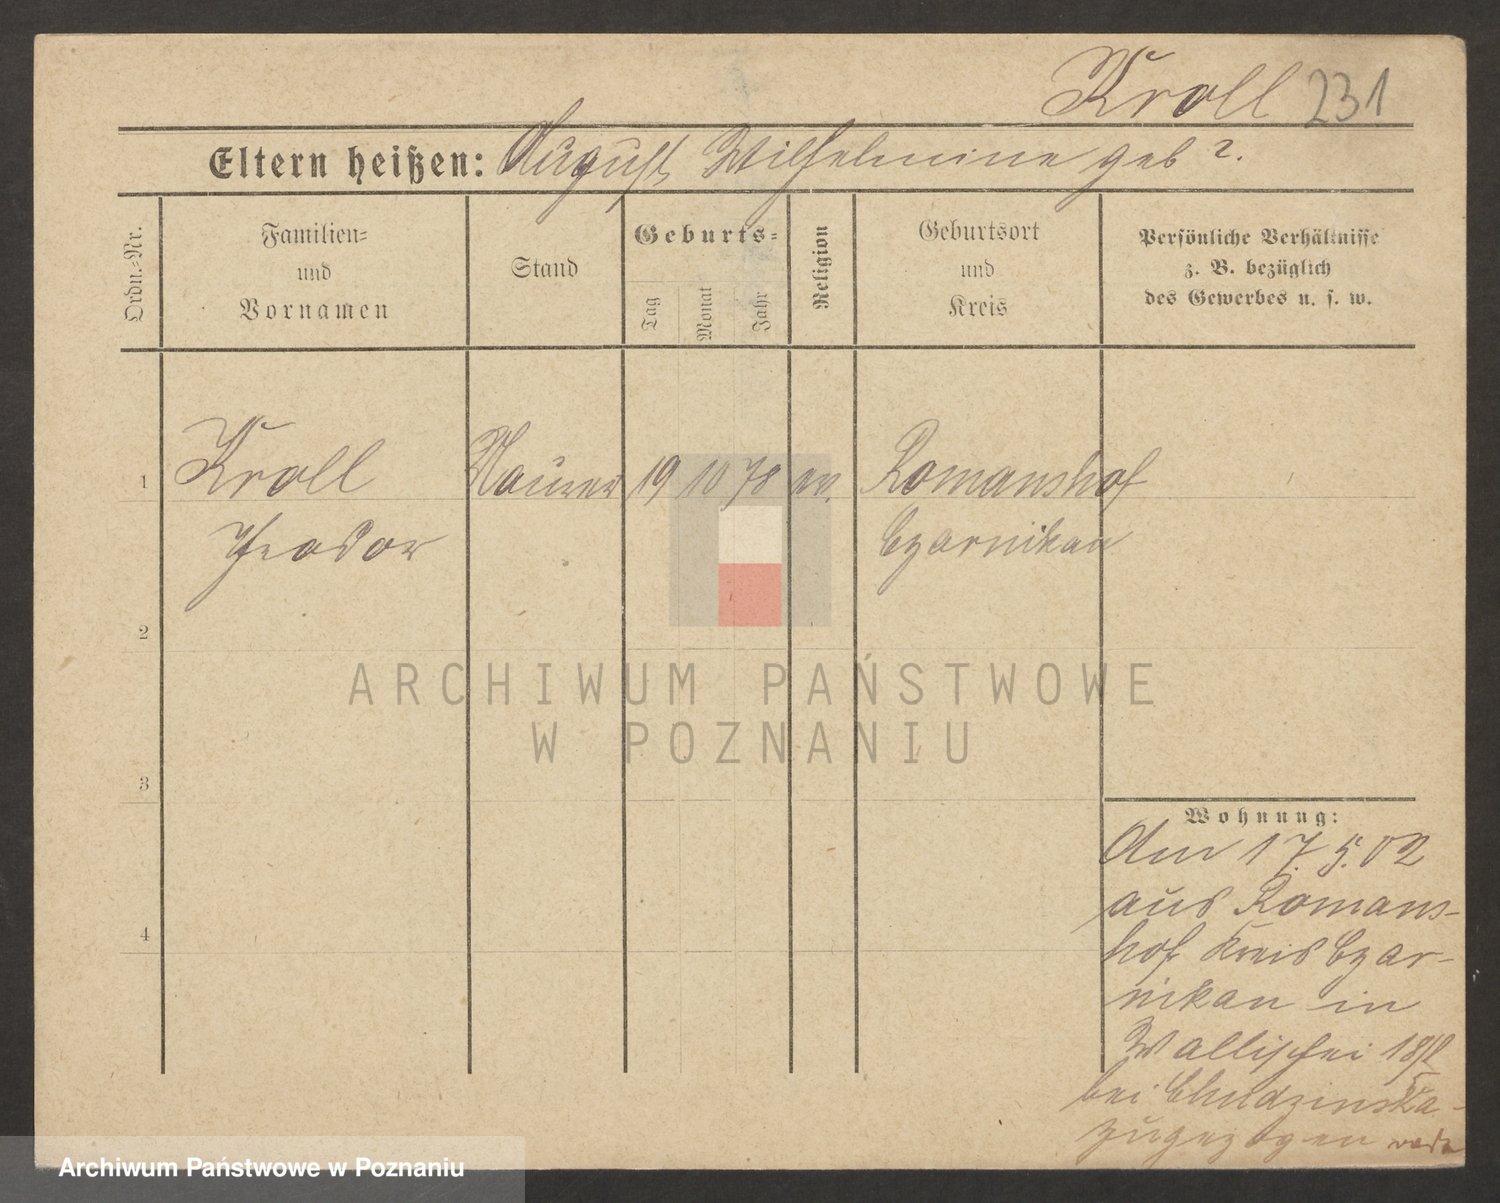 Kroll 231
Eltern heißen: August, Wilhelmine geb ?.
Ordn.-Nr.
Familien-
und
Vornamen
Stand
Geburts-
Tag
Monat
Jahr
Religion
Geburtsort
und
Kreis
Persönliche Verhältnisse
z. B. bezüglich
des Gewerbes u. s. w.
1 Kroll Maurer 19 10 78 ev. Romanshof
Theodor Czarnikau
2
3
4
Wohnung:
Am 17.5.02
aus Romans-
hof Kreis Czar-
nikau in
Wallischei
bei Chudzinska
zugezogen
ARCHIWUM PAŃSTWOWE
W POZNANIU
Archiwum Państwowe w Poznaniu